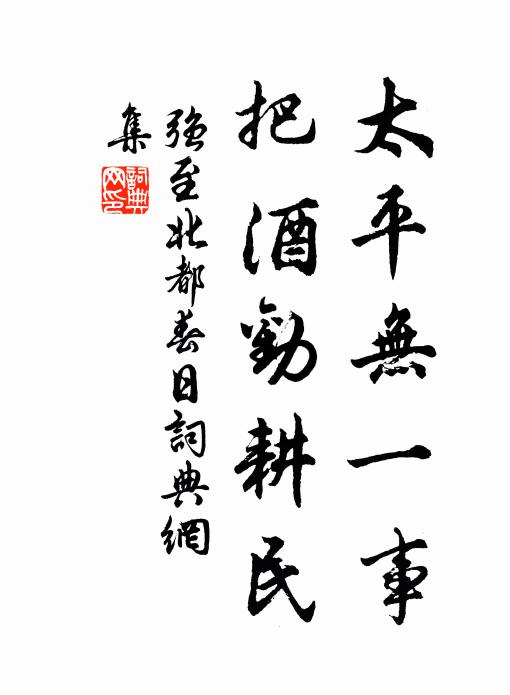 太平無一事
把酒勸耕民
強至北都春日詞典網
集
詞典
网印